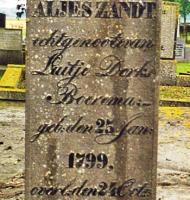 ALJES ZANDT
echtgenoote van
Luitje Derks
Boerema:
geb. den 25 Jan:
1799.
overl. den 24 Octr.